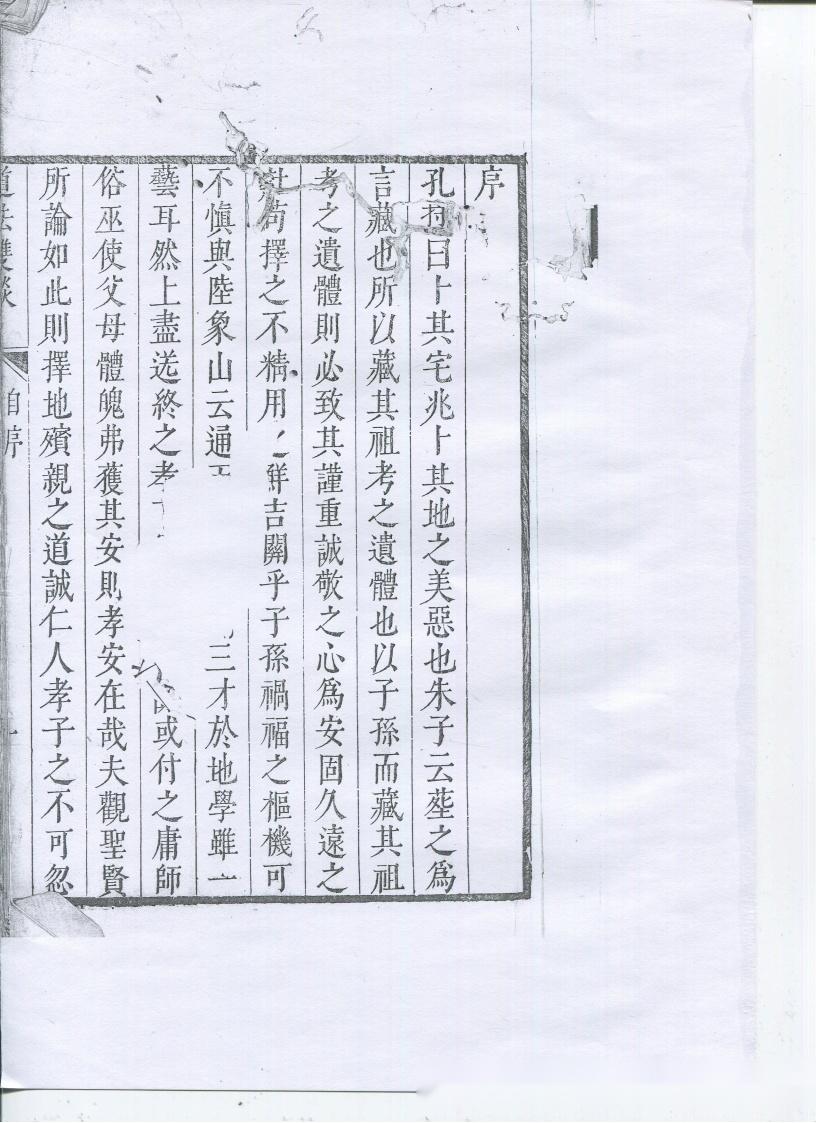 序
孔 曰卜其宅兆卜其地之美惡也朱子云塟之為
言藏也所以藏其祖考之遺體也以子孫而藏其祖
考之遺體則必致其謹重誠敬之心為安固久遠之
計苟擇之不精用 吉關乎子孫禍福之樞機可
不慎與陸象山云通 三才於地學雖一
藝耳然上盡送終之孝 或付之庸師
俗巫使父母體魄弗獲其安則孝安在哉夫觀聖賢
所論如此則擇地殯親之道誠仁人孝子之不可忽
道法雙談 自序